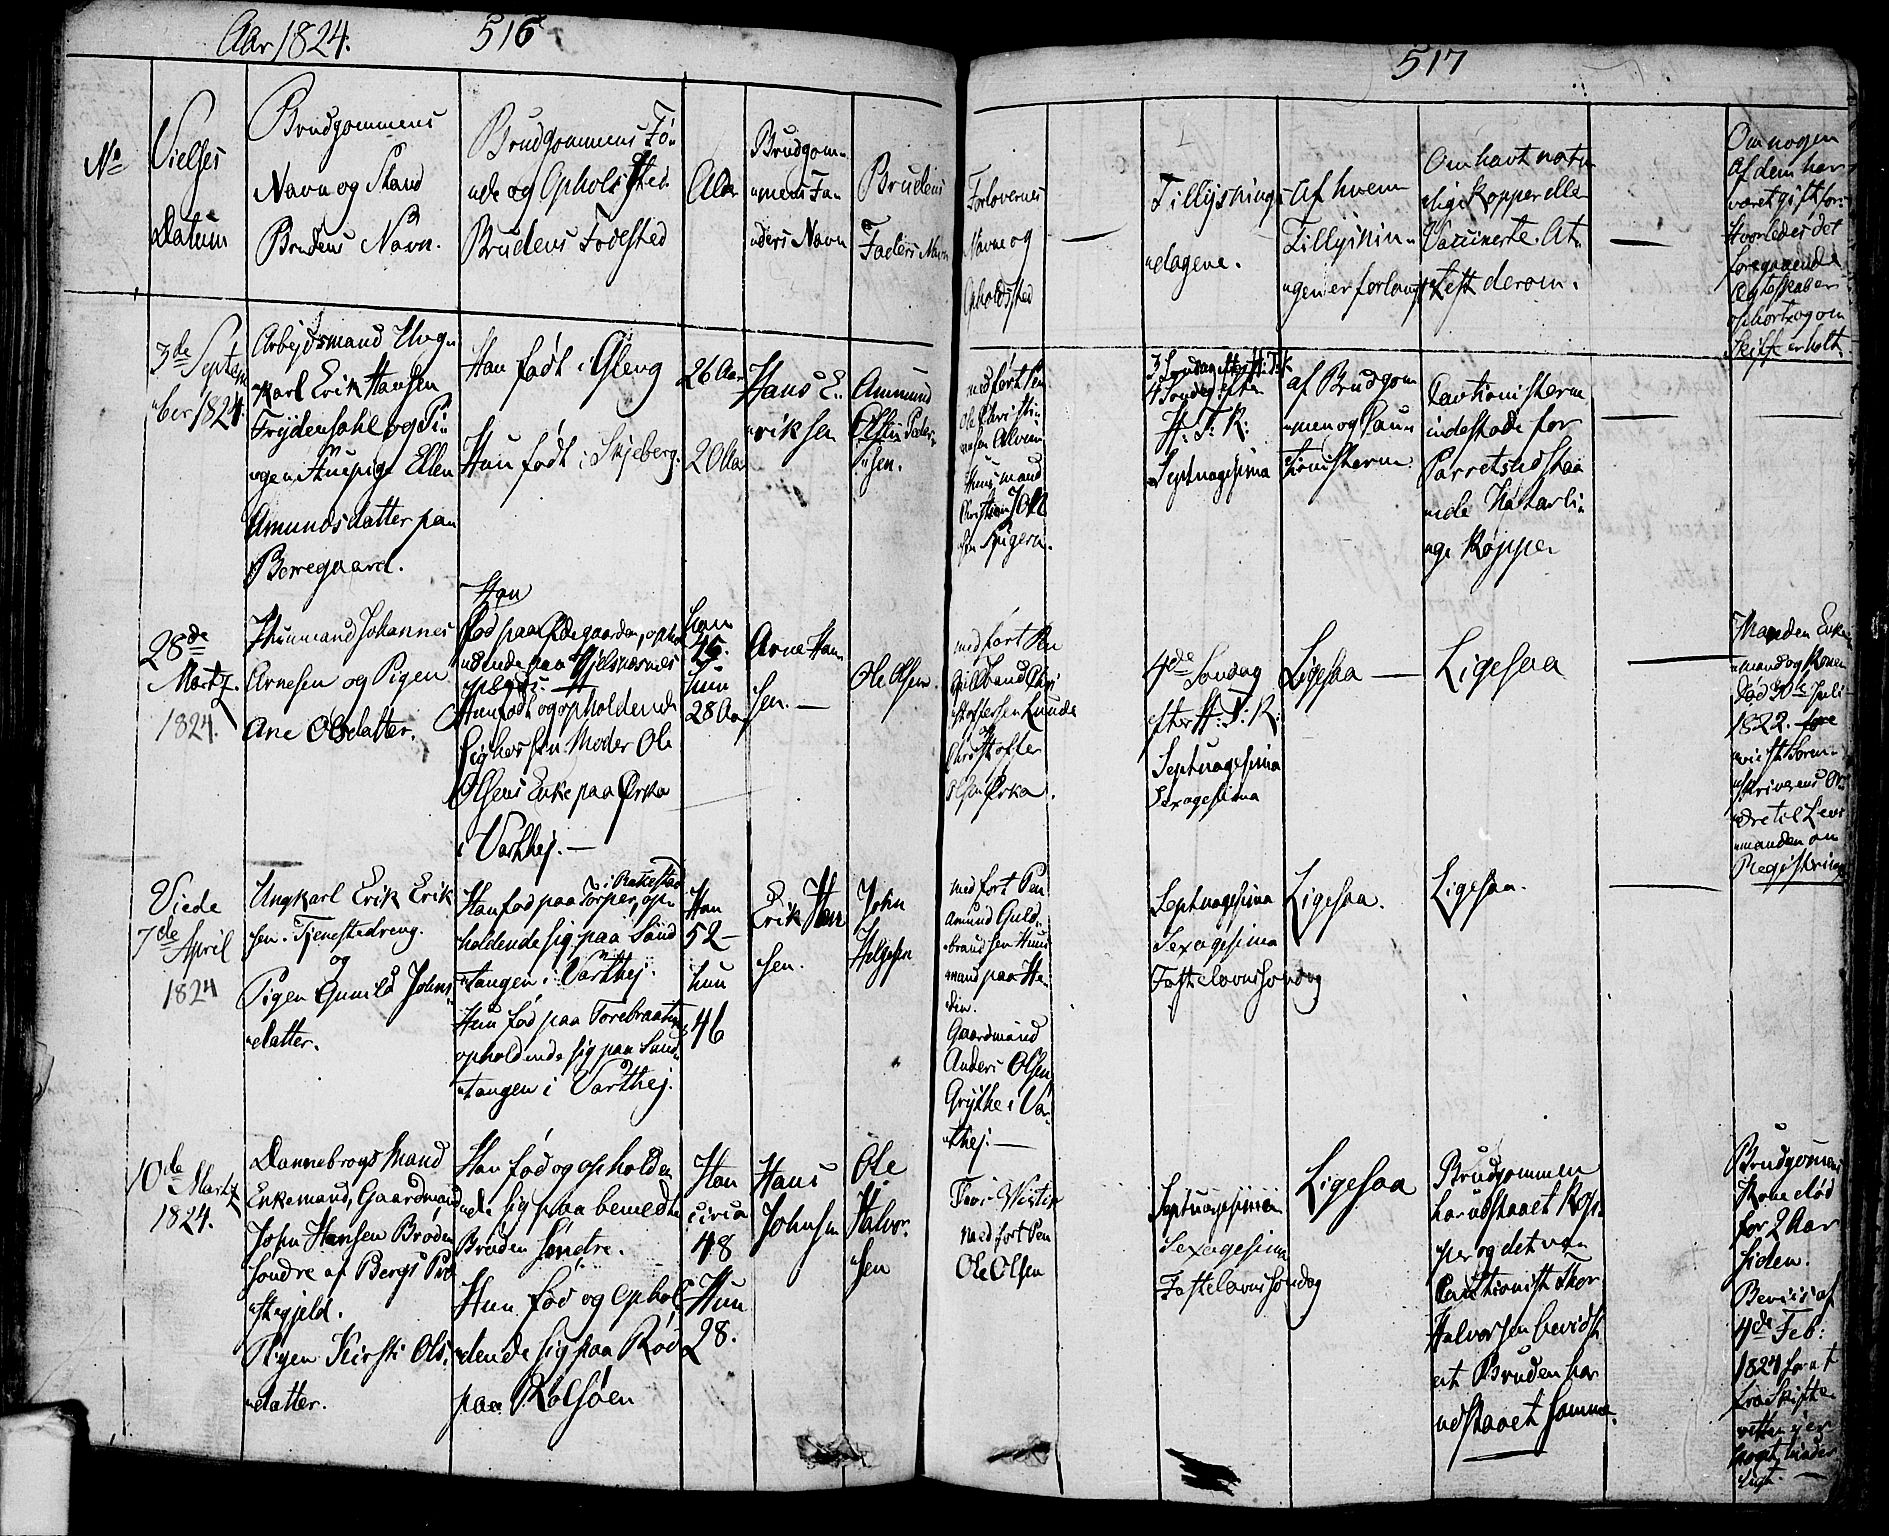 Aar 1824.
516
517
No
Vielses
Datum
Brudgommens
Navn og Stand
Brudens Navn.
Brudgommens Fø-
ude og Opholssted
Brudens Fødested
Alder
Brudgom-
mens Fa-
ders Navn
Brudens
Faders Navn
Forlovernes
Navne og
Opholdsted
Tillysnings-
dagene.
Af hvem
Tillysnin-
gen er forlangt
Om havt natu-
lige Kopper eller
Vaccinerte. At-
test derom.
Om nogen
af dem har
været gift før.
Hvorledes det
foregaaende
Ægteskaber
ophørt og om
Skifte er holt
3de Septem
ber 1824.
Arbejdsmand Ung-
karl Erik Hansen
Frydendahl og Pi-
gen Ellen
Amundsdatter paa
Berregaard.
Han født i Gleng
Hun født i Skjeberg.
26 Aar
20 Aar
Hans E-
riksen
Ammund
Olsen Peder-
sen.
med fort Pen
Ole Christi-
ansen
Huusmand
Christian
3 Søndag efter H: T: K
4 Søndag efter
H: T: K:
Septuagesima
af Brudgom
men og Cau-
tionisterne.
Cautionisterne
indestode for
Parrets udstaa
ende Naturli-
ge Kopper
28de
Martz
1824.
Huusmand Johannes
Arnesen og Pigen
Ane Olsdatter.
Han
fød paa Ødegaarden, ophol
dende paa
Hun født og opholdende
sig hos sin Moder Ole
Olsens Enke paa Ørka
i Varthej. —
han
45.
hun
28 Aar
Arne Han-
sen. —
Ole Olsen.
med fort Pen
Guldbrand Chri
stoffersen Lunde
Christoffer
Olsen Ørka.
4de Søndag
efter H: T: K:
Septuagesima
Sexagesima
Ligesaa —
Ligesaa
Manden Enke-
mand og Konen
død 30te Juli
1822. fore
vist Soren-
skriverens Or-
dre til Lens-
manden om
Registrering
Viede
7de April
1824
Ungkarl Erik Erik
sen. Tjenestedreng.
og
Pigen Gunild Johns-
datter.
i Rakkestad
Han fød paa Torper, op-
holdende sig paa Sand
tangen i Varthej.
Hun fød paa Torebraaten
opholdende sig paa Sand-
tangen i Varthej.
Han
52 —
hun
46
Erik Han
sen.
John
Helgesen
med fort Pen
Amund Guld-
brandsen Huus
mand paa He-
din.
Gaardmand
Anders Olsen
Grythe i Var-
thej. —
Septuagesima
Sexagesima
Fastelavnssøndag
Ligesaa.
Ligesaa.
10de Martz
1824.
Dannebrogs Mand
Enkemand, Gaardmand
John Hansen Brøden
søndre af Bergs Præ
stegjeld.
Pigen Kirsti Ols-
datter.
Han fød og opholden
de sig paa benevnte
Brøden søndre.
Hun fød og ophol-
dende sig paa Rød
paa Rolsøen
Han
circa
48
Hun
28.
Hans
Johnsen
Ole
Halvor-
sen
med fort Pen
Ole Olsen
Septuagesima
Sexagesima
Fastelavnssøndag
Ligesaa
Brudgommen
har udstaaet Kop-
per og det var
Cautionist Thor
Halvorsen bevidst
at Bruden har
udstaaet samme.
Brudgommens
Kone død
for 2 Aar
siden.
Beviis af
4de Feb:
1824 for at
fra Skifte-
retten